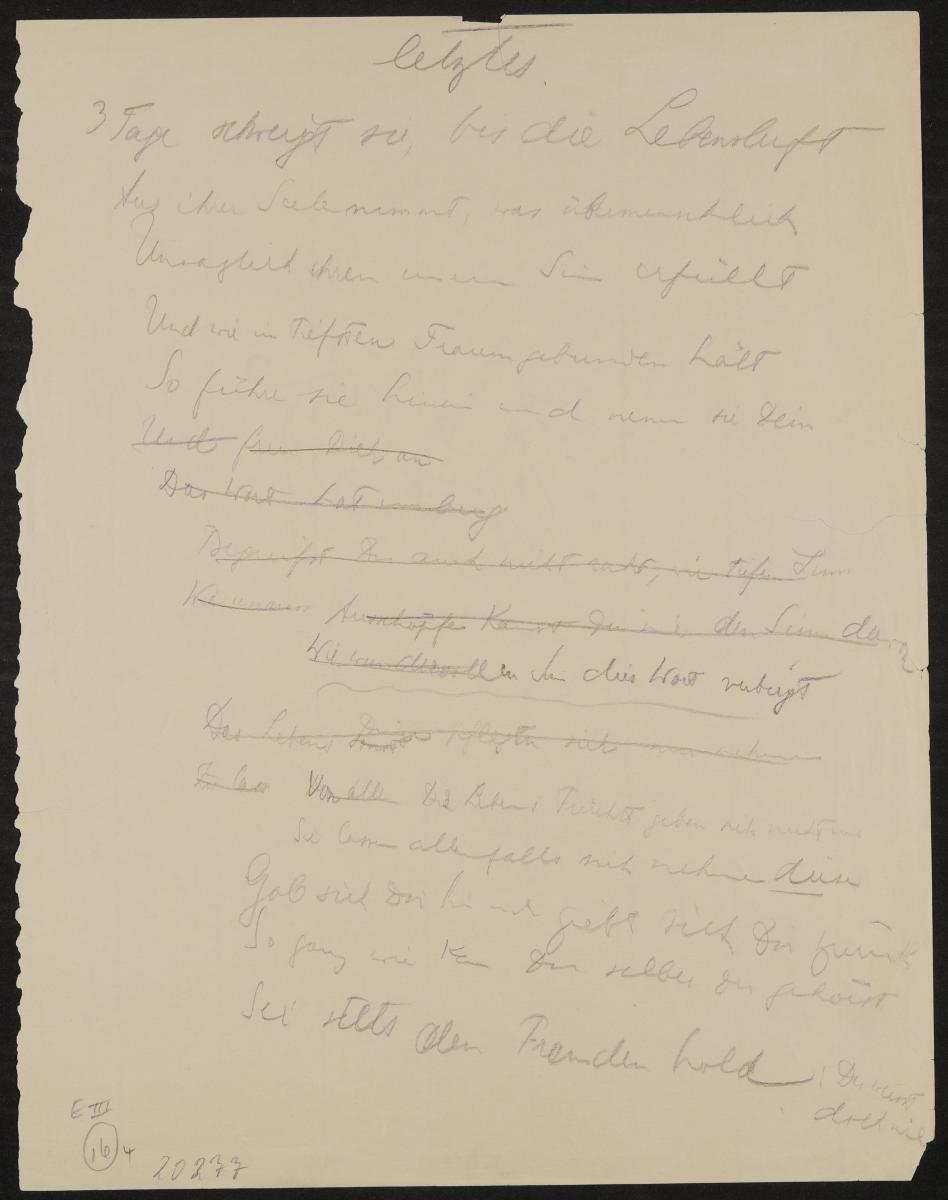 letztes.
3 Tage schweigt sie, bis die Lebensluft
Aus ihrer Seele nimmt, was übermenschlich
Unsäglich ihren innern Sinn erfüllt
Und wie in tiefsten Traum gebunden hält
So führe sie hinein und nenn sie Dein
Und freu Dich an
Das Wort hat
Begreifst Du auch nicht, wie tiefen Sinn
Ausschöpfen Kannst Du nie den Sinn
Wie wundervollen Sinn dies Wort verbirgt
Das Lebens sich nur nehmen
Von allen Des Lebens Früchte geben sich nicht uns
Sie lassen allenfalls sich nehmen diese
Gab sich Dir hin und giebt sich Dir zurück
So ganz wie Du selber Dir gehörst
Sei stets dem Fremden hold : Du weisst
doch nie
E III
16 4
20277